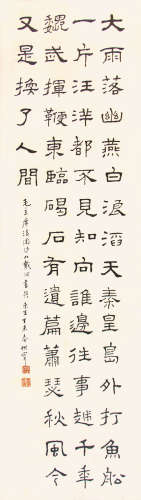 大雨落幽燕白浪滔天秦皇島外打魚船
一片汪洋都不見知向誰邊往事越千年
魏武揮鞭東臨碣石有遺篇蕭瑟秋風今
又是換了人間
毛主席浪淘沙北戴河